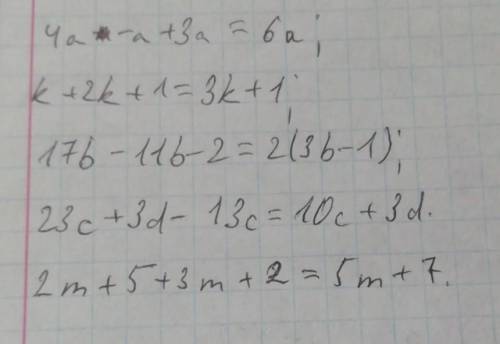 4a - a + 3a = 6a;
k + 2k + 1 = 3k + 1;
17b - 11b - 2 = 2(3b - 1);
23c + 3d - 13c = 10c + 3d.
2m + 5 + 3m + 2 = 5m + 7.